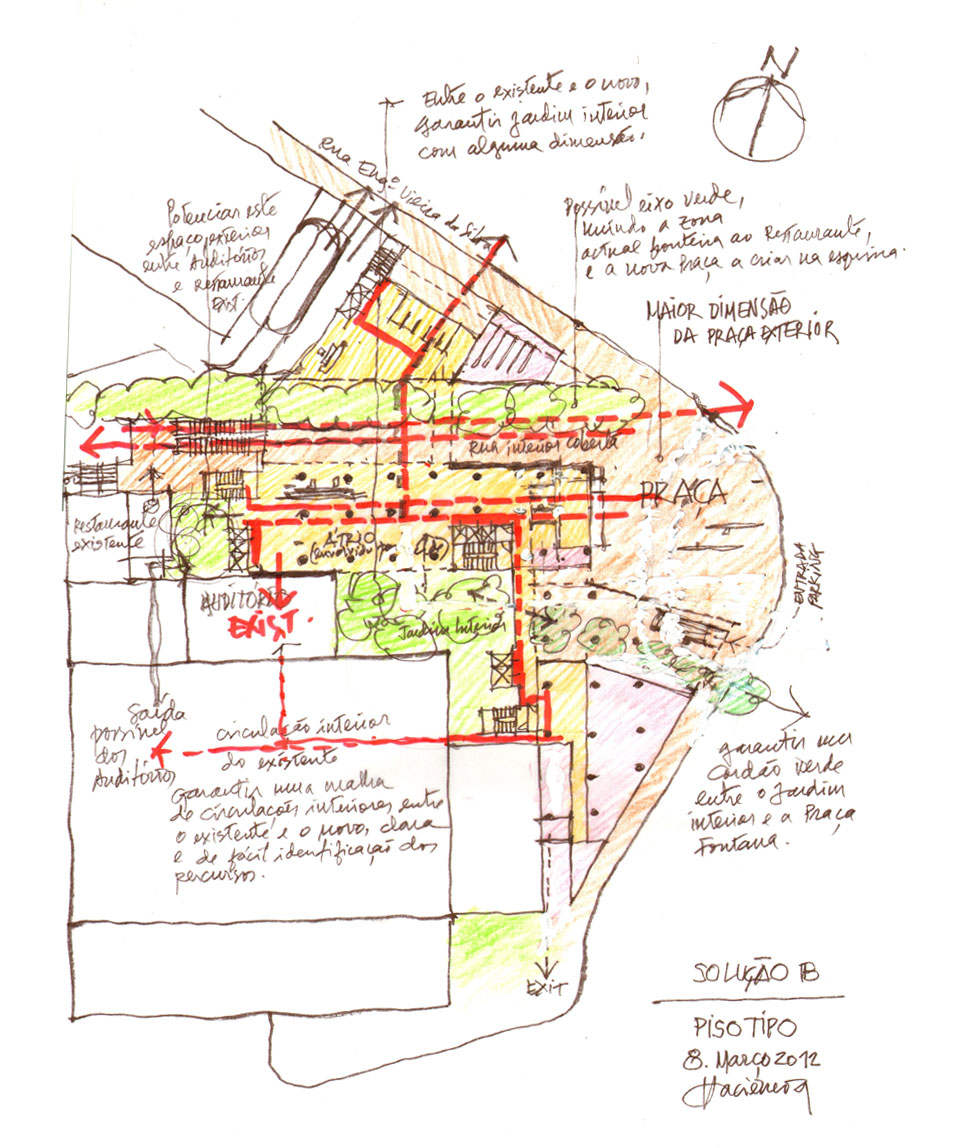 N
Entre o existente e o novo,
garantir jardim interior
com alguma dimensão.
Rua Engº Vieira da Silva
Potenciar este
espaço exterior
entre Auditório
e Restaurante
Exist.
Possível eixo verde,
unindo a zona
actual fronteira ao Restaurante,
e a nova Praça a criar na esquina.
MAIOR DIMENSÃO
DA PRAÇA EXTERIOR
Rua interior coberta
PRAÇA
Restaurante
existente
ÁTRIO
ENTRADA
PARKING
AUDITÓRIO
EXIST.
Jardim Interior
Saída
possível
dos
Auditórios
circulação interior
do existente
Garantir uma malha
de circulações interiores, entre
o existente e o novo, clara
e de fácil identificação dos
percursos.
garantir um
cordão verde
entre o Jardim
interior e a Praça
Fontana.
EXIT
SOLUÇÃO B
PISO TIPO
8. Março 2012